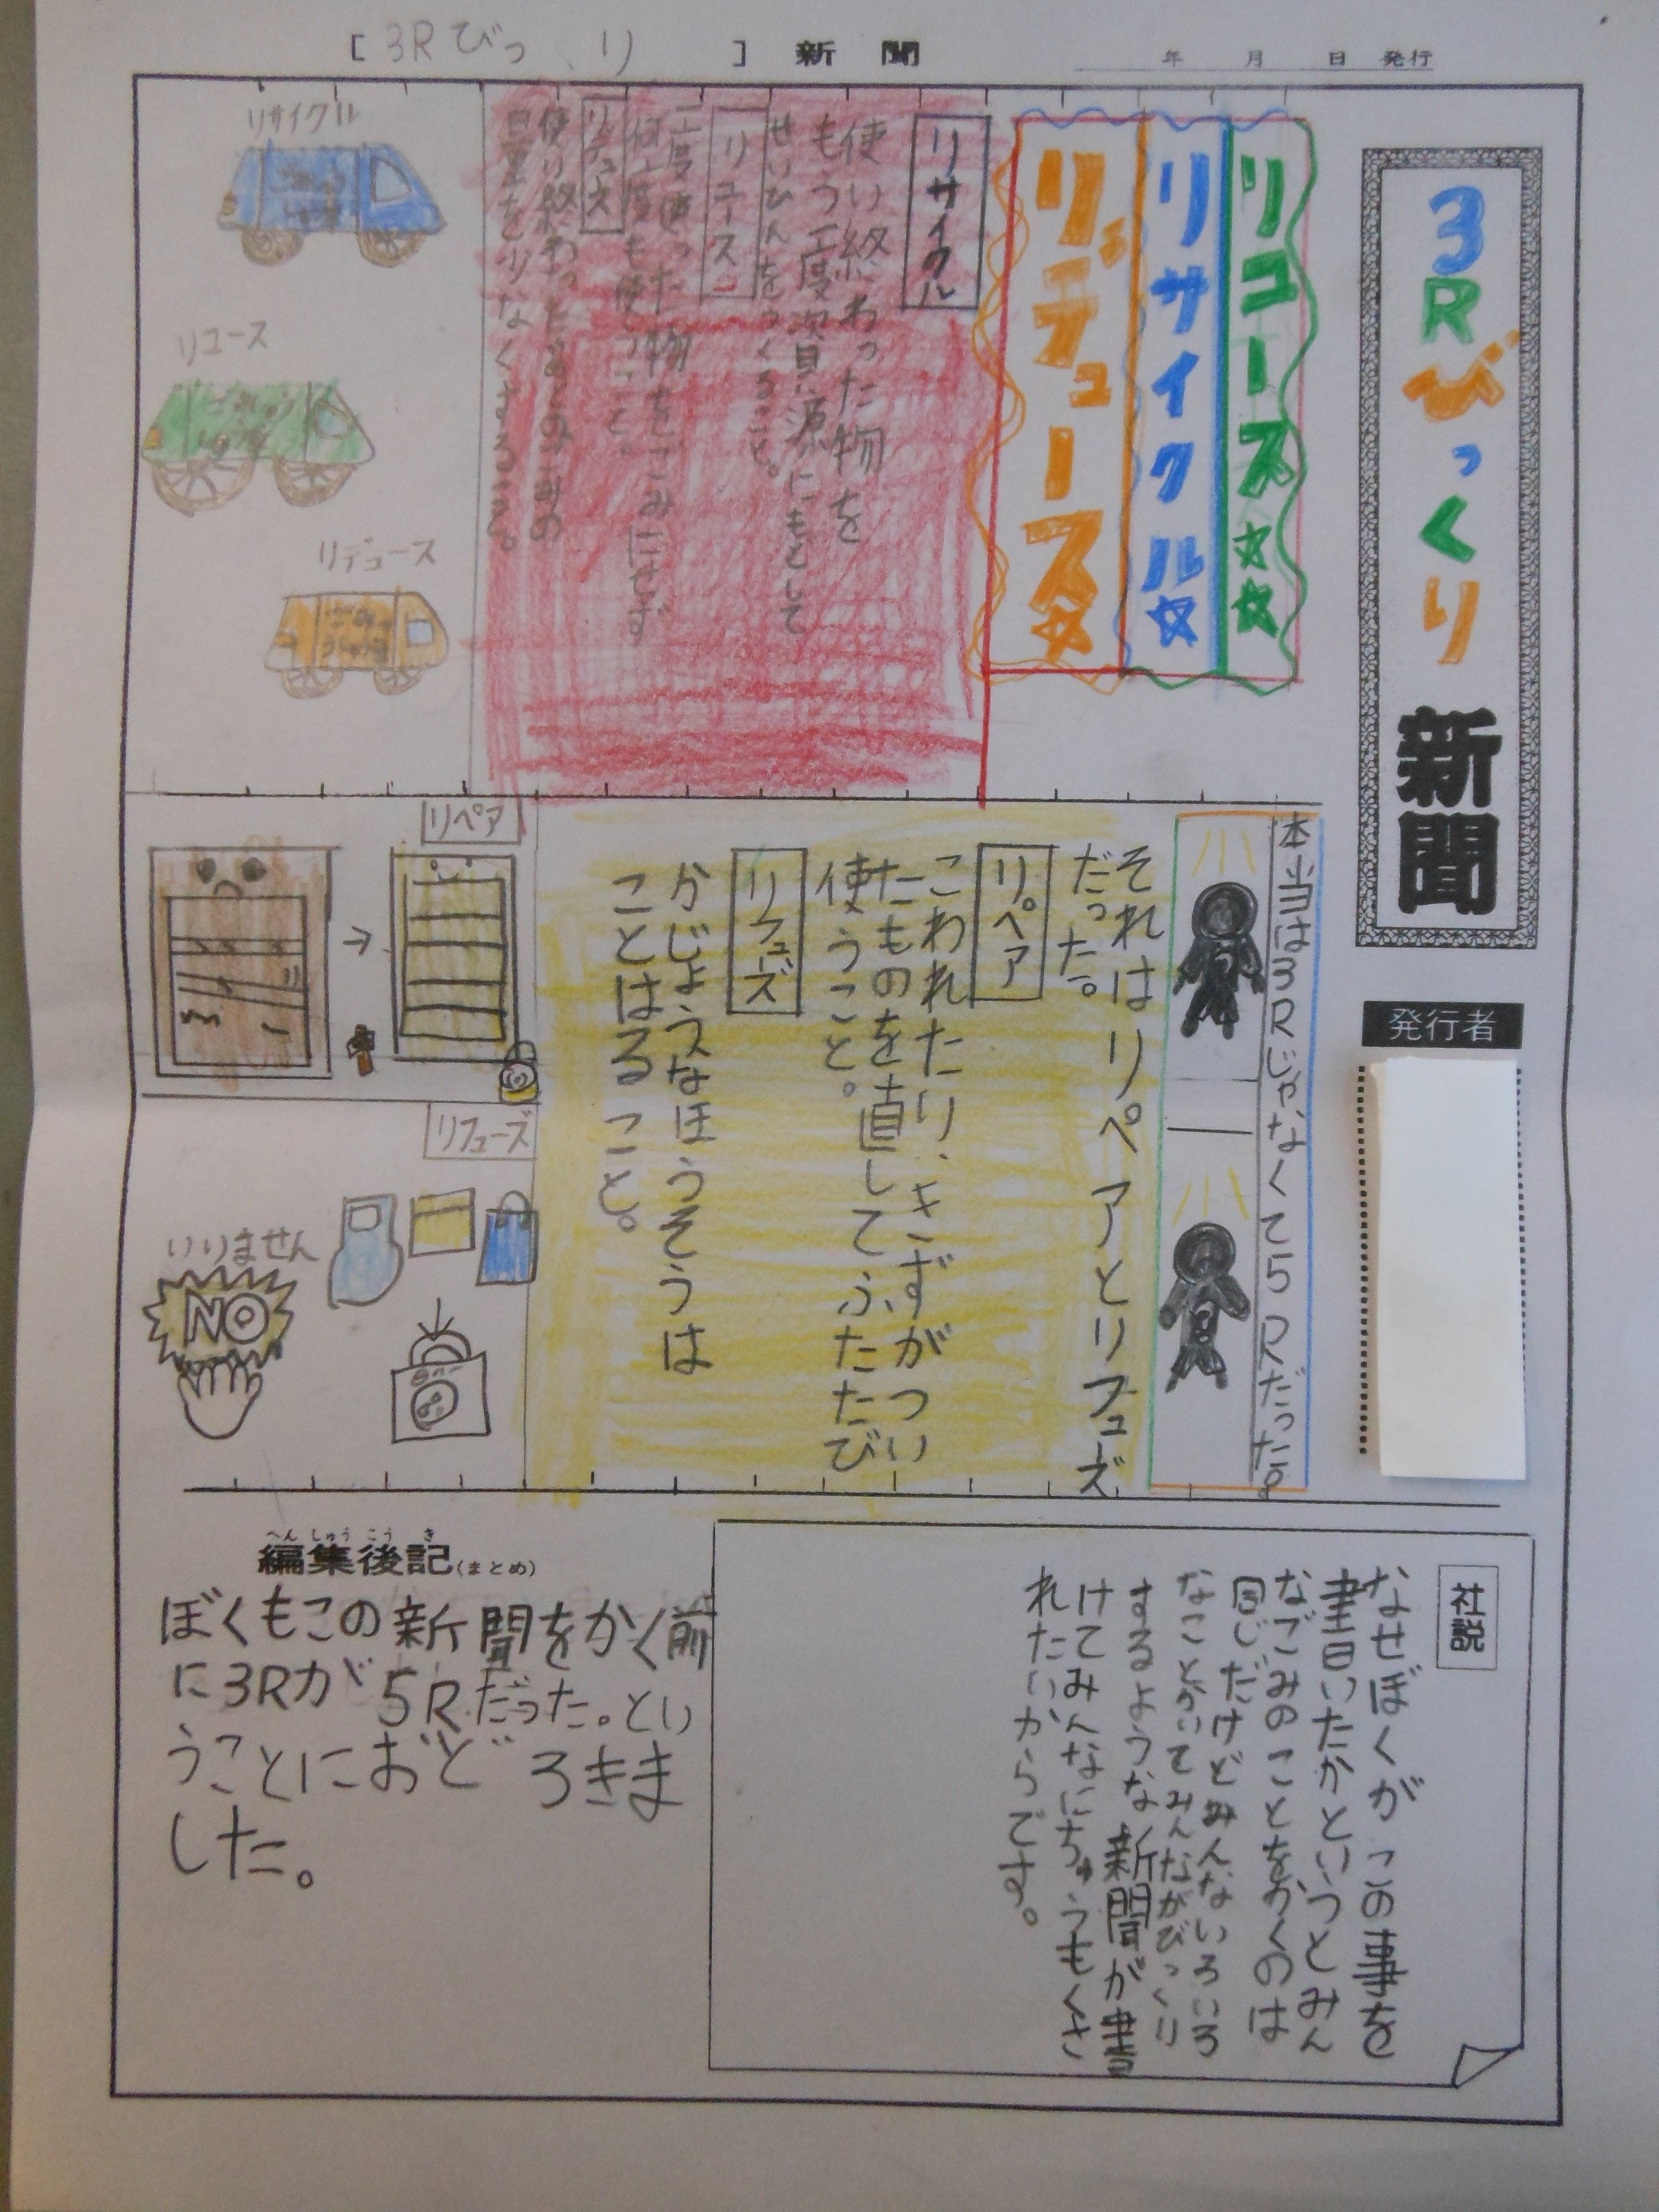 [3Rびっくり]新聞
年 月 日 発行
3Rびっくり新聞
発行者
リユース☆☆
リサイクル☆
リデュース☆
リサイクル
使い終わった物を
もう一度資源にもどして
せいひんをつくること。
リユース
一度使った物をごみにせず
何度も使うこと。
リデュース
使い終わったあとのごみの
量を少なくすること。
リサイクル
リユース
リデュース
本当は3Rじゃなくて5Rだった。
それはリペアとリフューズ
だった。
リペア
こわれたり、きずがつい
たものを直してふたたび
使うこと。
リフューズ
かじょうなほうそうは
ことはること。
リペア
リフューズ
いりません
NO
社説
なせぼくがこの事を
書いたかというとみん
なごみのことをかくのは
同じだけどみんないろいろ
なことかいてみんながびっくり
するような新聞が書
けてみんなにちゅうもくさ
れたいからです。
へんしゅうこうき
編集後記(まとめ)
ぼくもこの新聞をかく前
に3Rが5Rだった。とい
うことにおどろきま
した。